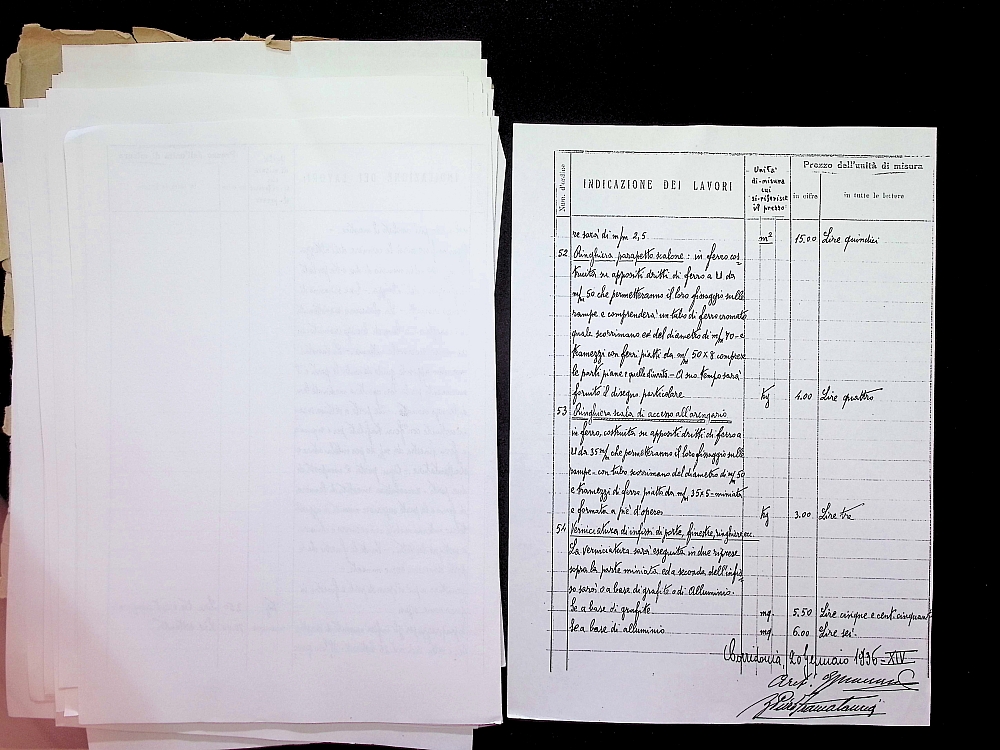 Num. d'ordine
INDICAZIONE DEI LAVORI
Unità
di misura
cui
si riferisce
il prezzo
Prezzo dell'unità di misura
in cifre
in tutte le lettere
re sarà di m/m 2,5 m² 15,00 Lire quindici
52 Ringhiera parapetto scalone: in ferro cos-
truita su appositi dritti di ferro a U da
m/m 50 che permetteranno il loro fissaggio sulle
rampe e comprenderà un tubo di ferro cromato
quale scorrimano ex del diametro di m/m 70 - e
tramezzi con ferri piatti da m/m 50 x 8 comprese
le parti piane e quelle - A suo tempo sarà
fornito il disegno particolare kg 4.00 Lire quattro
53 Ringhiera scala di accesso all'arengario
in ferro, costruita su appositi dritti di ferro a
U da 35 m/m che permetteranno il loro fissaggio sulle
rampe - con tubo scorrimano del diametro di m/m 50
e tramezzi di ferro piatto da m/m 35 x 5 = miniata
e fermata a piè d'opera kg 3.00 Lire tre
54 Verniciatura di infissi di porte, finestre, ringhiere ecc.
La verniciatura sarà eseguita in due riprese
sopra la parte miniata ed a seconda dell'infis-
so sarà o a base di grafite o di Alluminio.
Se a base di grafite mq. 5,50 Lire cinque e cent. cinquant
Se a base di alluminio mq. 6.00 Lire sei.
Corridonia, 20 Gennaio 1936 = XIV
Arch.